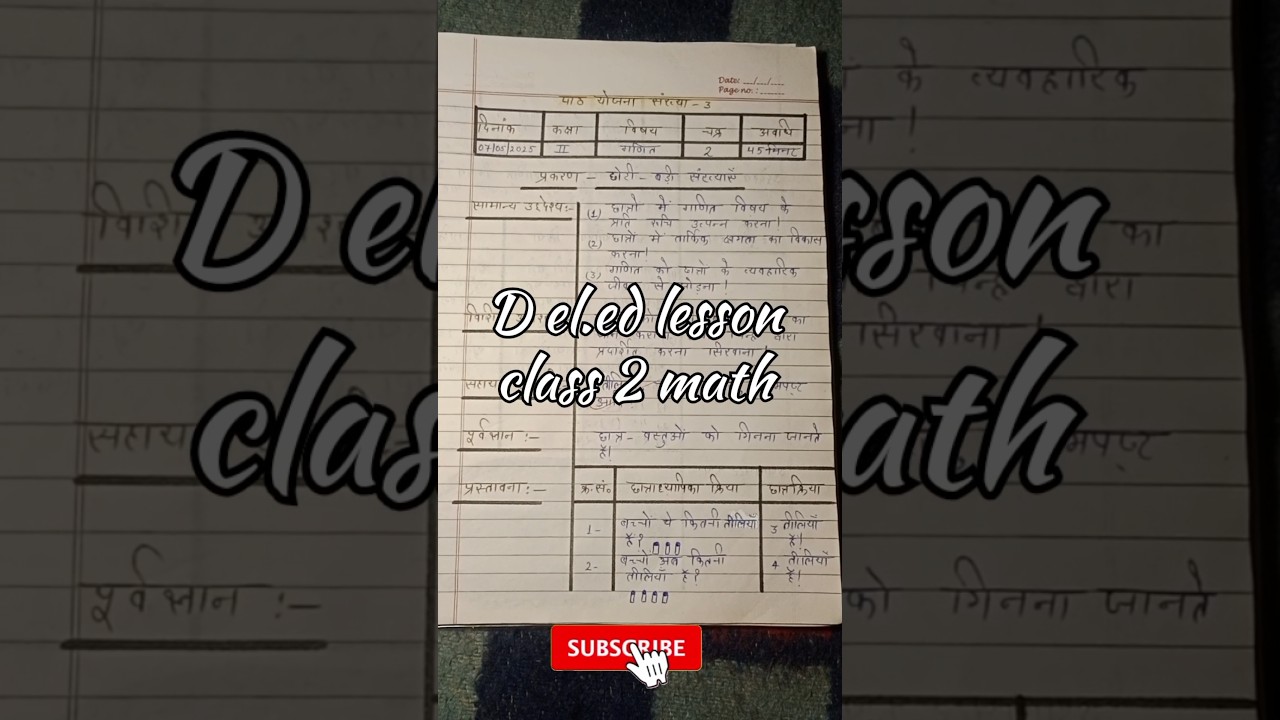 Date: __/__/__
Page no.: ____
पाठ योजना संख्या - 3
दिनांक कक्षा विषय चक्र अवधि
07/05/2025 II गणित 2 45 मिनट
प्रकरण - छोटी - बड़ी संख्याएँ
सामान्य उद्देश्य:-
(1) छात्रों में गणित विषय के
प्रति रुचि उत्पन्न करना।
(2) छात्रों में तार्किक क्षमता का विकास
करना।
(3) गणित को छात्रों के व्यवहारिक
से जोड़ना।
D el.ed lesson
class 2 math
का
द्वारा
प्रदर्शित करना सिखाना।
पूर्वज्ञान :-
छात्र - वस्तुओं को गिनना जानते
हैं।
प्रस्तावना :-
क्र.सं. छात्राध्यापिका क्रिया छात्रक्रिया
1- बच्चों ये कितनी तीलियाँ 3 तीलियाँ
हैं? हैं।
2- बच्चों अब कितनी 4 तीलियाँ
तीलियाँ हैं? हैं।
SUBSCRIBE